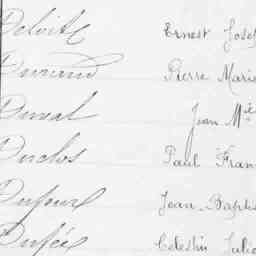 Deloite Ernest Josep
Durand Pierre Marie
Duval Jean Mie
Duclos Paul Fran
Dufour Jean-Baptis
Dufée Célestin Julie